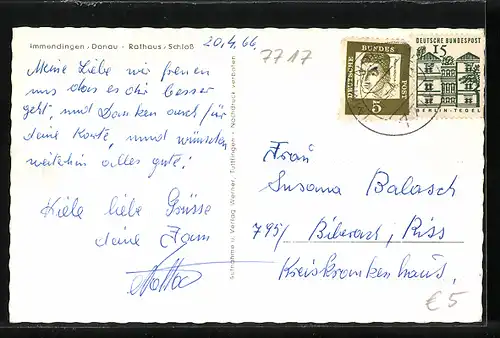 Immendingen/Donau - Rathaus/Schloß
20.4.66.
7717
Meine Liebe wir freuen
uns das es dir besser
geht, und Danken auch für
deine Karte, und wünschen
weiterhin alles gute!
Viele liebe Grüsse
deine
Aufnahme u. Verlag Werner, Tuttlingen - Nachdruck verboten
DEUTSCHE BUNDESPOST
5
DEUTSCHE BUNDESPOST
15
BERLIN-TEGEL
Frau
Susana Balasch
795/ Biberach, Riss
Kreiskrankenhaus.
€5